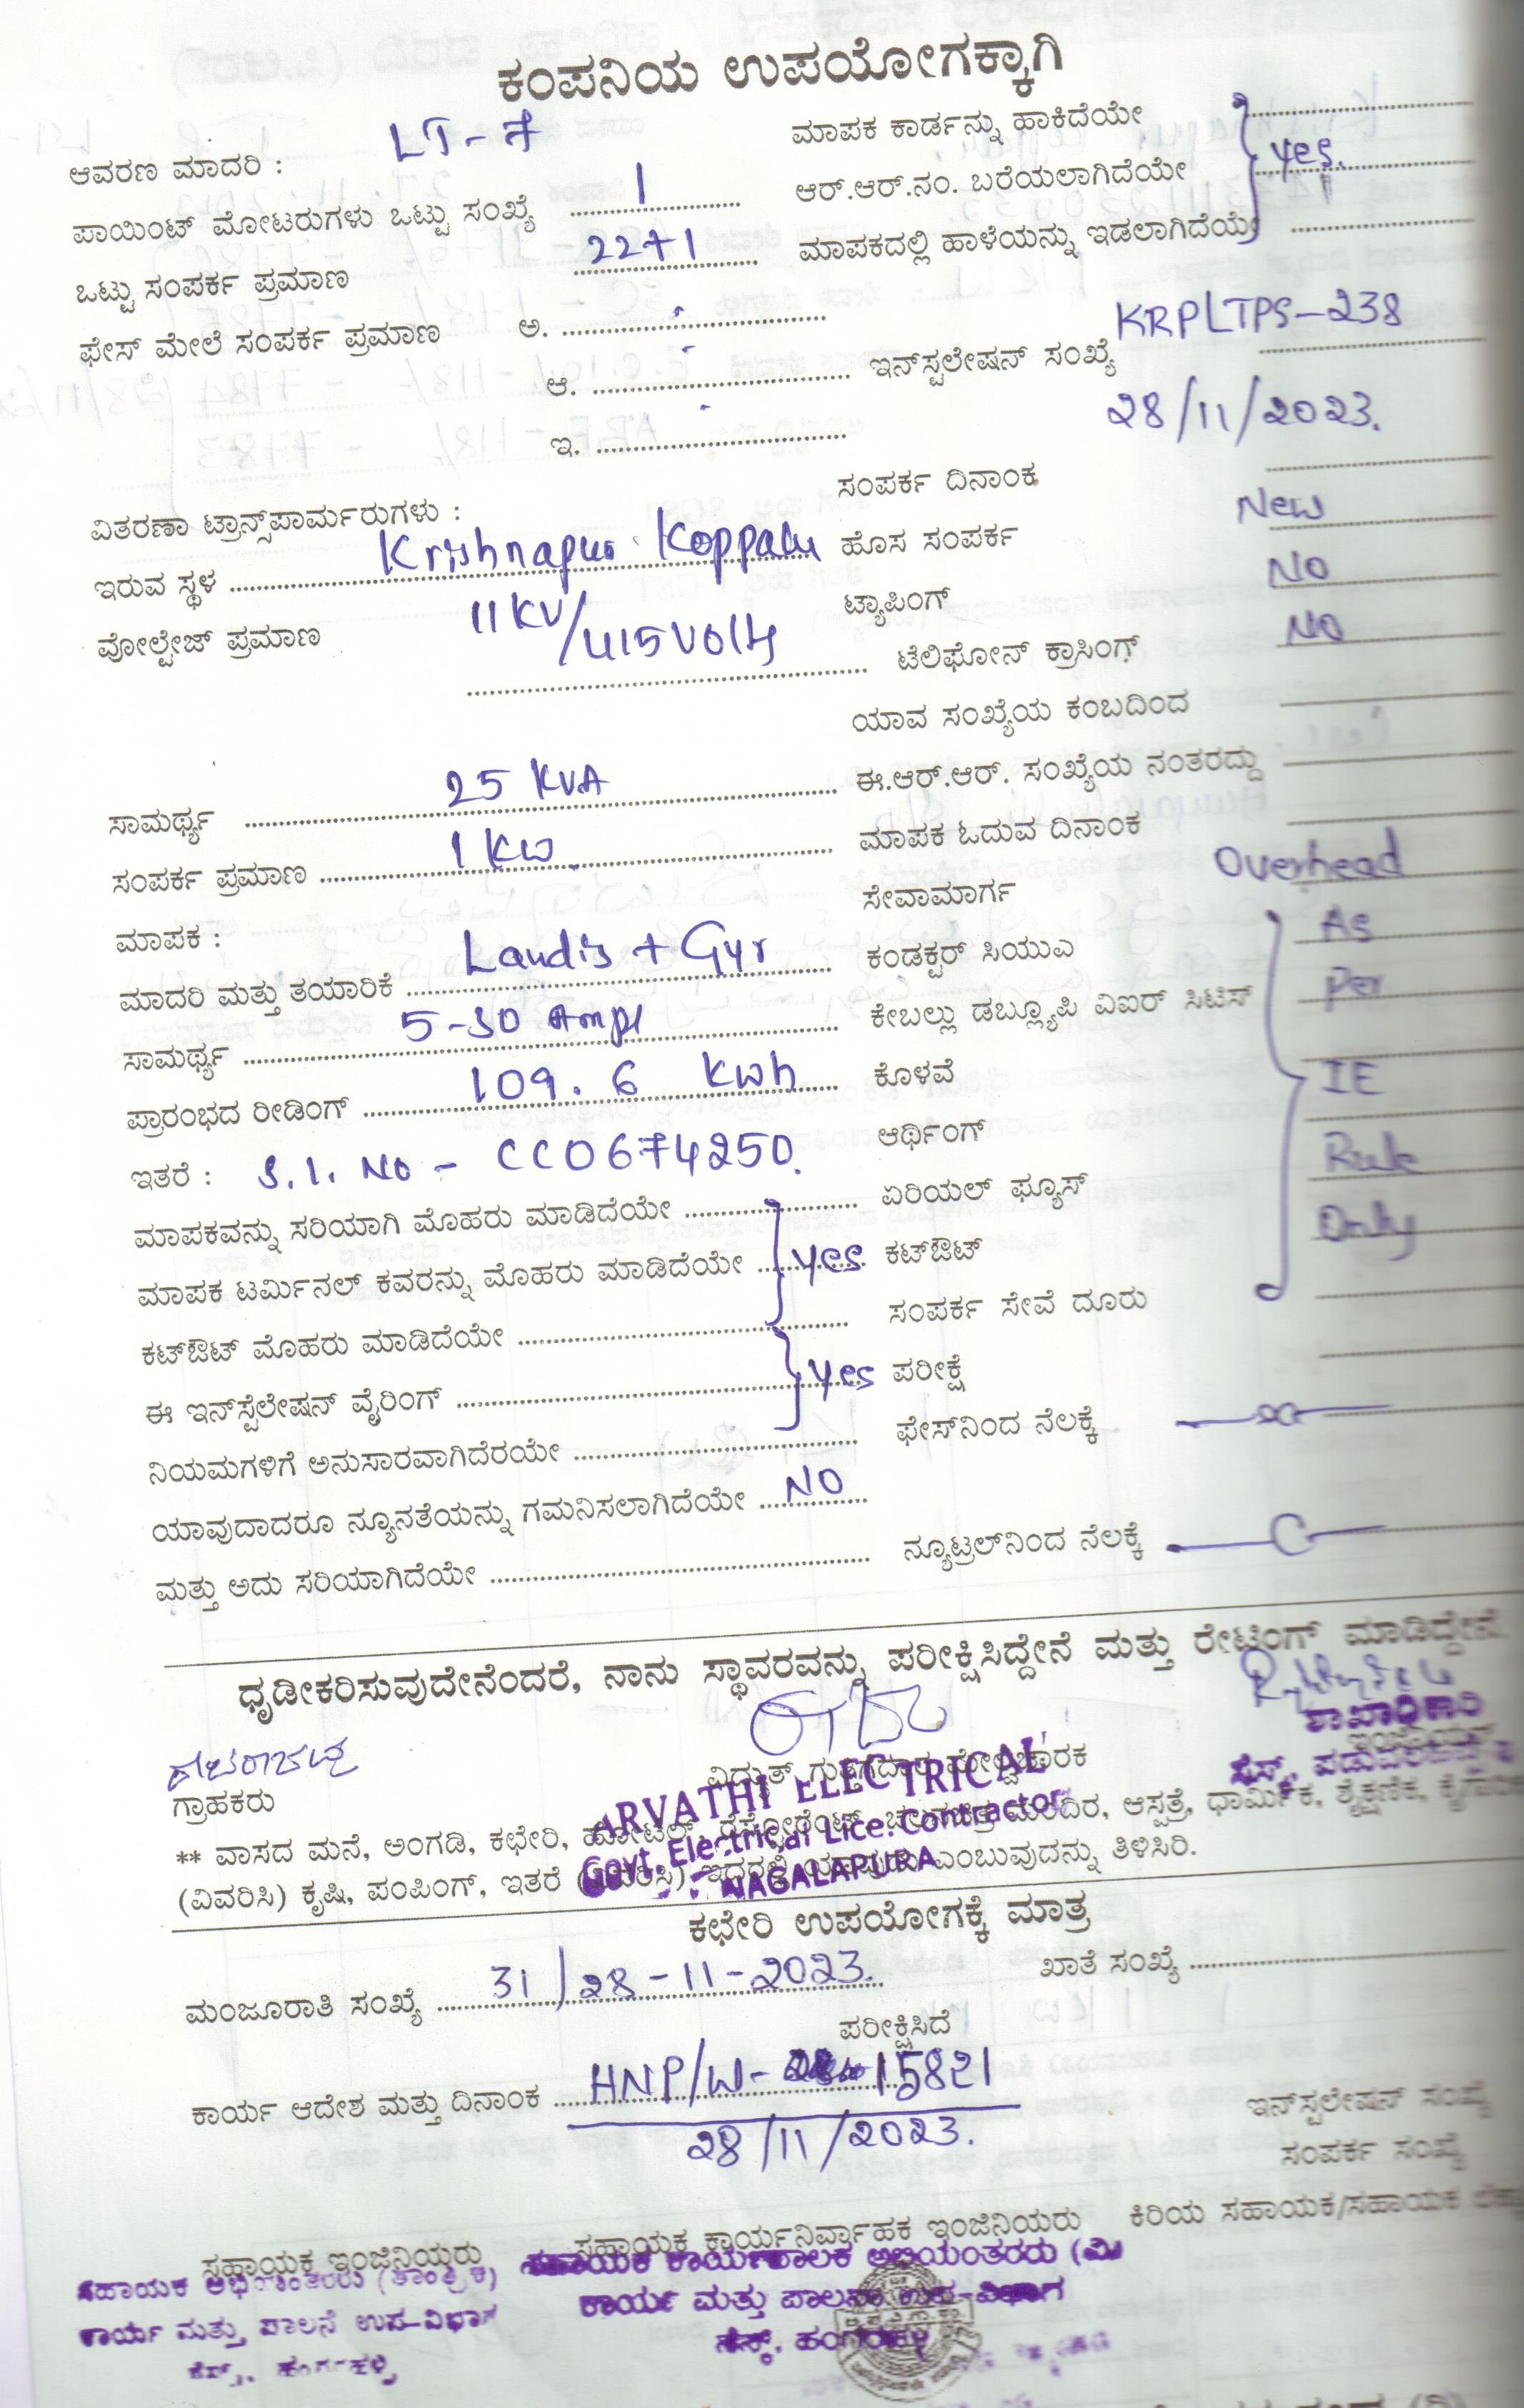 ಕಂಪನಿಯ ಉಪಯೋಗಕ್ಕಾಗಿ
ಆವರಣ ಮಾದರಿ : LT-7
ಪಾಯಿಂಟ್ ಮೋಟರುಗಳು ಒಟ್ಟು ಸಂಖ್ಯೆ 1
ಒಟ್ಟು ಸಂಪರ್ಕ ಪ್ರಮಾಣ 2271
ಫೇಸ್ ಮೇಲೆ ಸಂಪರ್ಕ ಪ್ರಮಾಣ ಅ.
ಆ.
ಇ.
ವಿತರಣಾ ಟ್ರಾನ್ಸ್‌ಪಾರ್ಮರುಗಳು :
ಇರುವ ಸ್ಥಳ Krishnapur Koppalu
ವೋಲ್ಟೇಜ್ ಪ್ರಮಾಣ 11KV/415Volts
ಸಾಮರ್ಥ್ಯ 25 KVA
ಸಂಪರ್ಕ ಪ್ರಮಾಣ 1KW
ಮಾಪಕ :
ಮಾದರಿ ಮತ್ತು ತಯಾರಿಕೆ Landis + Gyr
ಸಾಮರ್ಥ್ಯ 5-30
ಪ್ರಾರಂಭದ ರೀಡಿಂಗ್ 109.6 Kwh
ಇತರೆ : S.l. No - CC0674250.
ಮಾಪಕವನ್ನು ಸರಿಯಾಗಿ ಮೊಹರು ಮಾಡಿದೆಯೇ
ಮಾಪಕ ಟರ್ಮಿನಲ್ ಕವರನ್ನು ಮೊಹರು ಮಾಡಿದೆಯೇ yes
ಕಟ್‌ಔಟ್ ಮೊಹರು ಮಾಡಿದೆಯೇ
ಈ ಇನ್‌ಸ್ಟೆಲೇಷನ್ ವೈರಿಂಗ್ yes
ನಿಯಮಗಳಿಗೆ ಅನುಸಾರವಾಗಿದೆರಯೇ
ಯಾವುದಾದರೂ ನ್ಯೂನತೆಯನ್ನು ಗಮನಿಸಲಾಗಿದೆಯೇ NO
ಮತ್ತು ಅದು ಸರಿಯಾಗಿದೆಯೇ
ಮಾಪಕ ಕಾರ್ಡನ್ನು ಹಾಕಿದೆಯೇ
ಆರ್.ಆರ್.ನಂ. ಬರೆಯಲಾಗಿದೆಯೇ yes.
ಮಾಪಕದಲ್ಲಿ ಹಾಳೆಯನ್ನು ಇಡಲಾಗಿದೆಯೇ
ಇನ್‌ಸ್ಟಲೇಷನ್ ಸಂಖ್ಯೆ KRPLTPS-238
28/11/2023.
ಸಂಪರ್ಕ ದಿನಾಂಕ
ಹೊಸ ಸಂಪರ್ಕ New
ಟ್ಯಾಪಿಂಗ್ NO
ಟೆಲಿಫೋನ್ ಕ್ರಾಸಿಂಗ್ NO
ಯಾವ ಸಂಖ್ಯೆಯ ಕಂಬದಿಂದ
ಈ.ಆರ್.ಆರ್. ಸಂಖ್ಯೆಯ ನಂತರದ್ದು
ಮಾಪಕ ಓದುವ ದಿನಾಂಕ
ಸೇವಾಮಾರ್ಗ Overhead
ಕಂಡಕ್ಟರ್ ಸಿಯುಎ As
ಕೇಬಲ್ಲು ಡಬ್ಲ್ಯೂಪಿ ವಿಐರ್ ಸಿಟಿಸ್ Per
ಕೊಳವೆ IE
ಆರ್ಥಿಂಗ್
ಏರಿಯಲ್ ಫ್ಯೂಸ್ Rule
ಕಟ್‌ಔಟ್ Only
ಸಂಪರ್ಕ ಸೇವೆ ದೂರು
ಪರೀಕ್ಷೆ
ಫೇಸ್‌ನಿಂದ ನೆಲಕ್ಕೆ
ನ್ಯೂಟ್ರಲ್‌ನಿಂದ ನೆಲಕ್ಕೆ
ಧೃಡೀಕರಿಸುವುದೇನೆಂದರೆ, ನಾನು ಸ್ಥಾವರವನ್ನು ಪರೀಕ್ಷಿಸಿದ್ದೇನೆ ಮತ್ತು ರೇಟಿಂಗ್ ಮಾಡಿದ್ದೇನೆ.
ಶಾಖಾಧಿಕಾರಿ
ಗ್ರಾಹಕರು
ARVATHI ELECTRICAL
Govt. Electrical Lice. Contractor
NAGALAPURA
** ವಾಸದ ಮನೆ, ಅಂಗಡಿ, ಕಛೇರಿ, ಹೋಟೆಲ್, ಆಸ್ಪತ್ರೆ, ಧಾರ್ಮಿಕ, ಶೈಕ್ಷಣಿಕ,
(ವಿವರಿಸಿ) ಕೃಷಿ, ಪಂಪಿಂಗ್, ಇತರೆ ಎಂಬುವುದನ್ನು ತಿಳಿಸಿರಿ.
ಕಛೇರಿ ಉಪಯೋಗಕ್ಕೆ ಮಾತ್ರ
ಮಂಜೂರಾತಿ ಸಂಖ್ಯೆ 31/28-11-2023. ಖಾತೆ ಸಂಖ್ಯೆ
ಪರೀಕ್ಷಿಸಿದೆ
ಕಾರ್ಯ ಆದೇಶ ಮತ್ತು ದಿನಾಂಕ HNP/W- 15821
28/11/2023.
ಇನ್‌ಸ್ಟಲೇಷನ್ ಸಂಖ್ಯೆ
ಸಂಪರ್ಕ ಸಂಖ್ಯೆ
ಸಹಾಯಕ ಇಂಜಿನಿಯರು ಸಹಾಯಕ ಕಾರ್ಯನಿರ್ವಾಹಕ ಇಂಜಿನಿಯರು ಕಿರಿಯ ಸಹಾಯಕ/ಸಹಾಯಕ
ಕಾರ್ಯ ಮತ್ತು ಪಾಲನೆ ಉಪ-ವಿಭಾಗ
ಕಾರ್ಯ ಮತ್ತು ಪಾಲನಾ ಉಪ-ವಿಭಾಗ